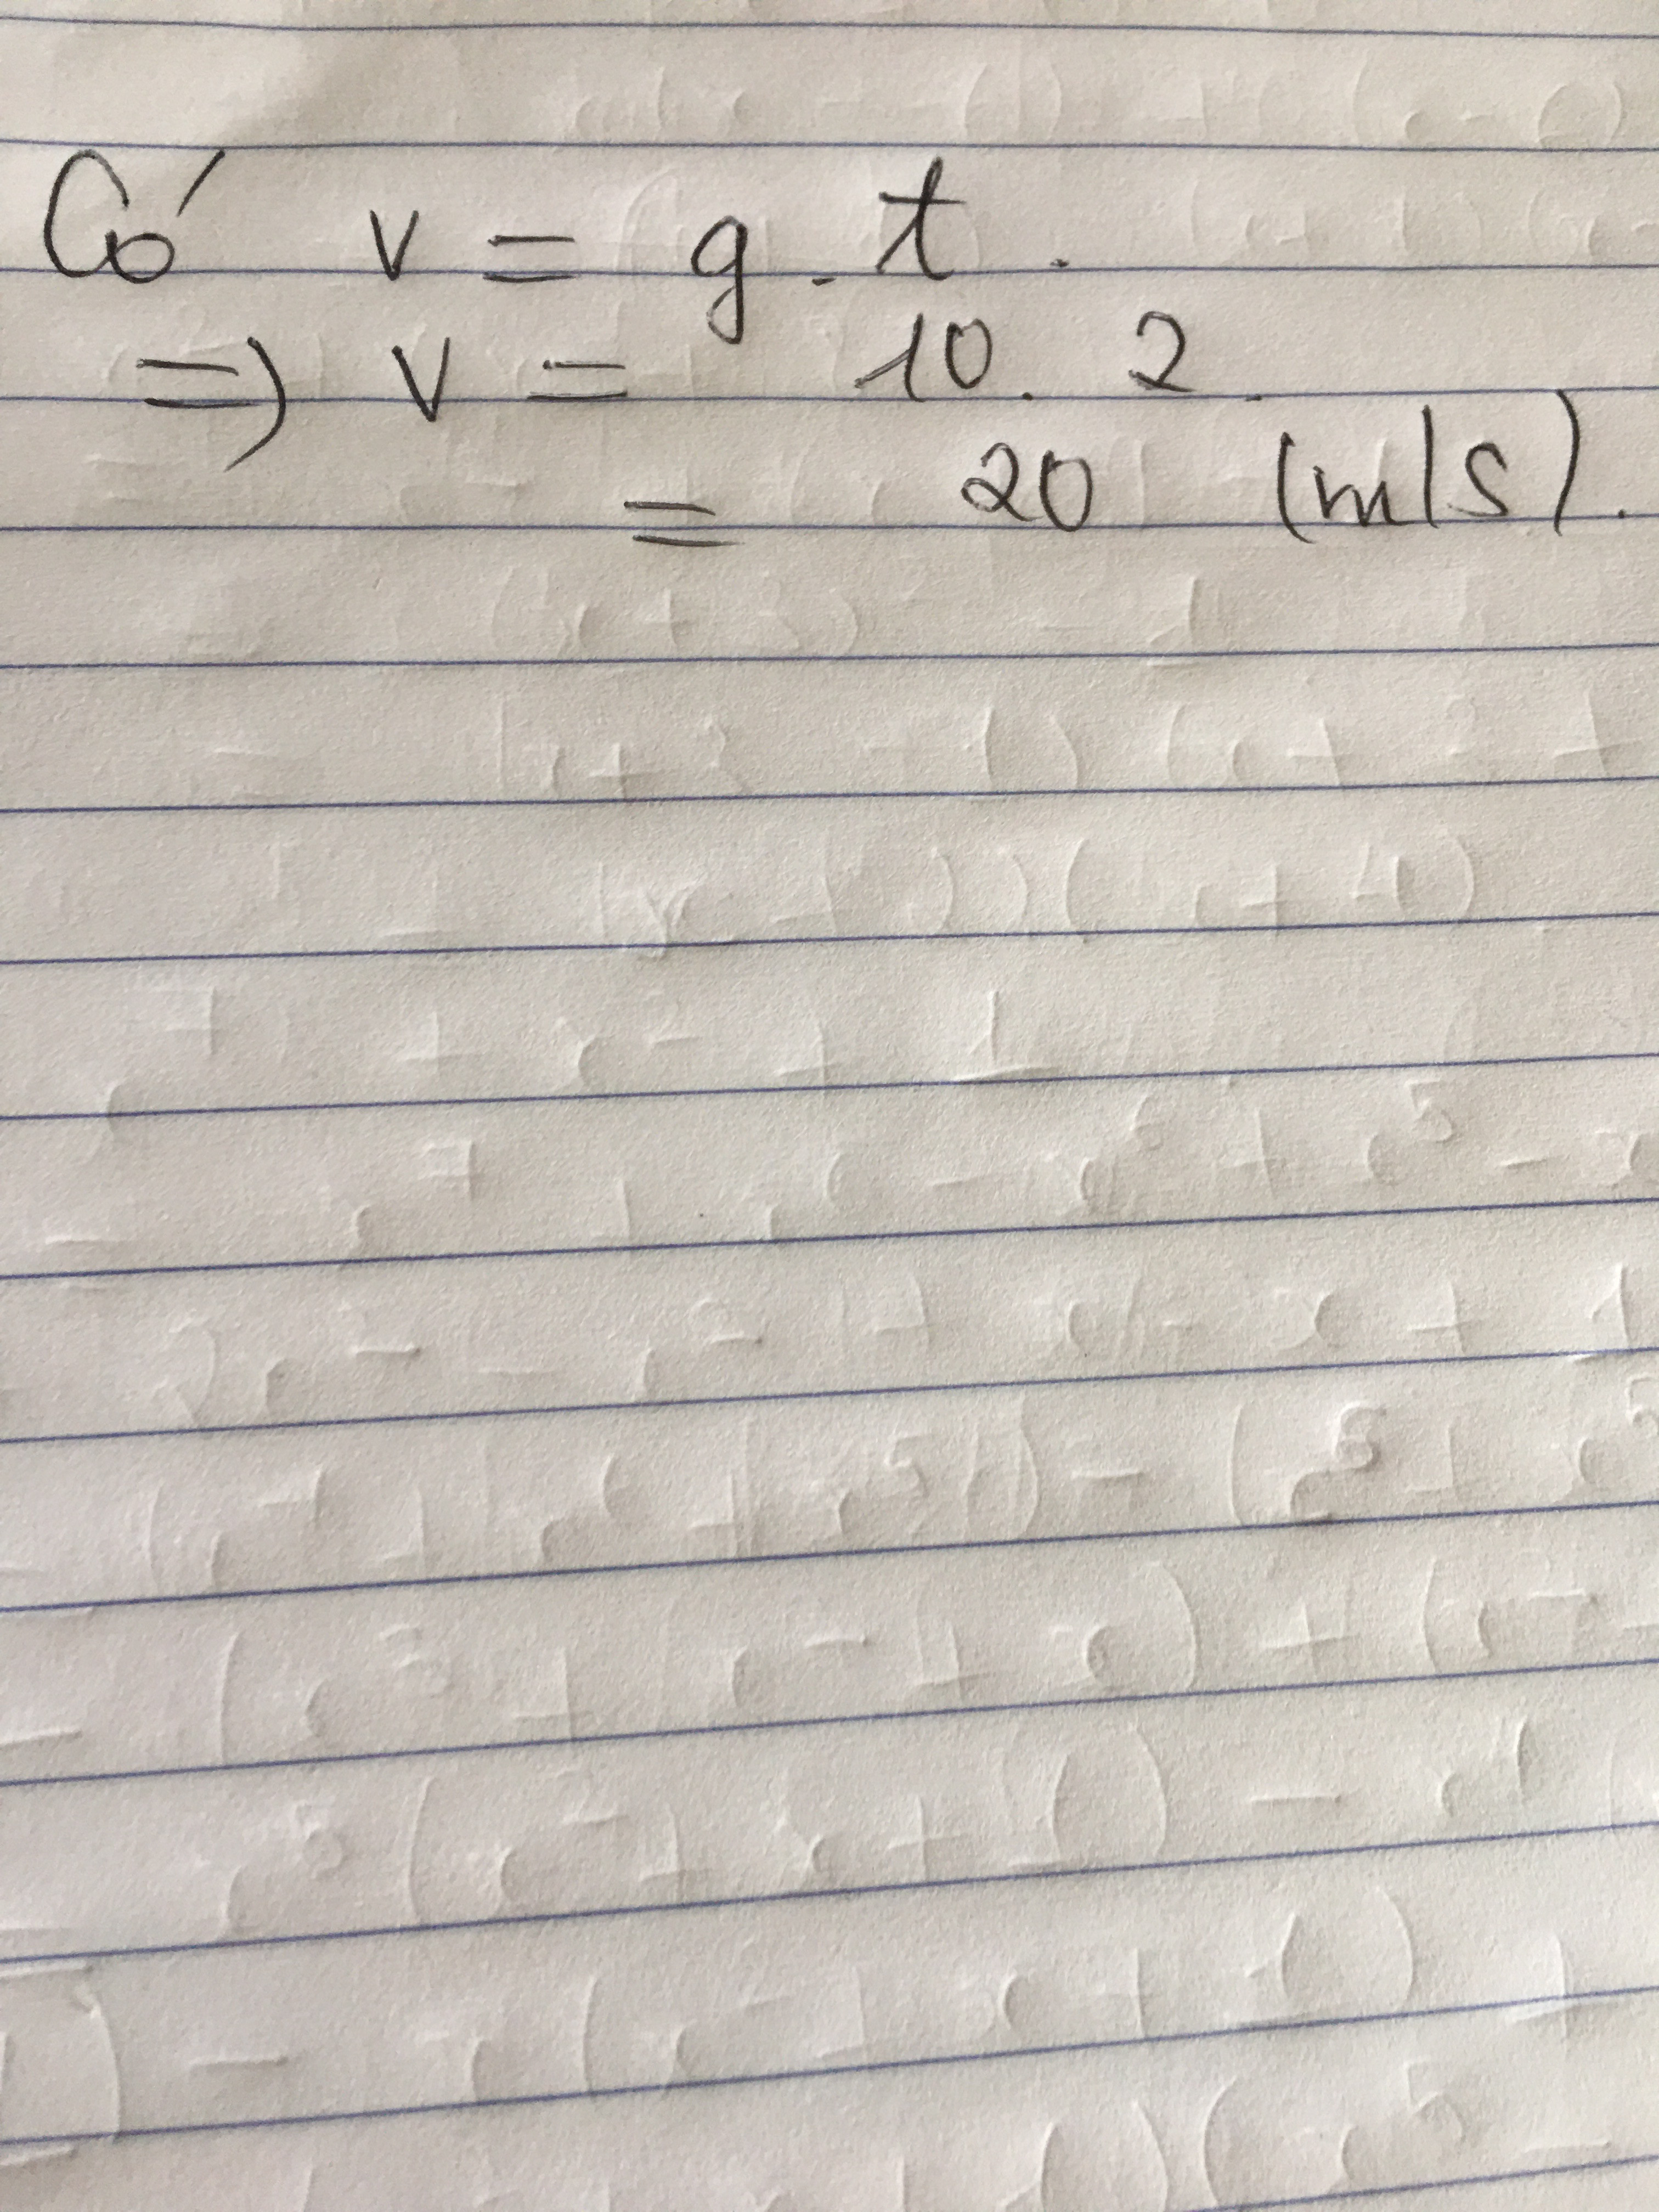 Có v = g . t .
=> v = 10 . 2 .
= 20 (m/s).